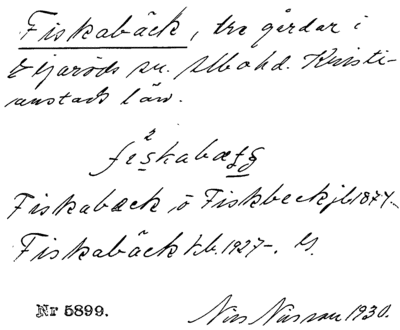 Fiskabäck, tre gårdar i
Ejaröds sn. Albo hd. Kristi-
anstads län.
Fiskabæck o Fiskbeck jb 1877-
Fiskabäck Jb. 1927-.
Nr 5899. Nils Nilsson 1930.